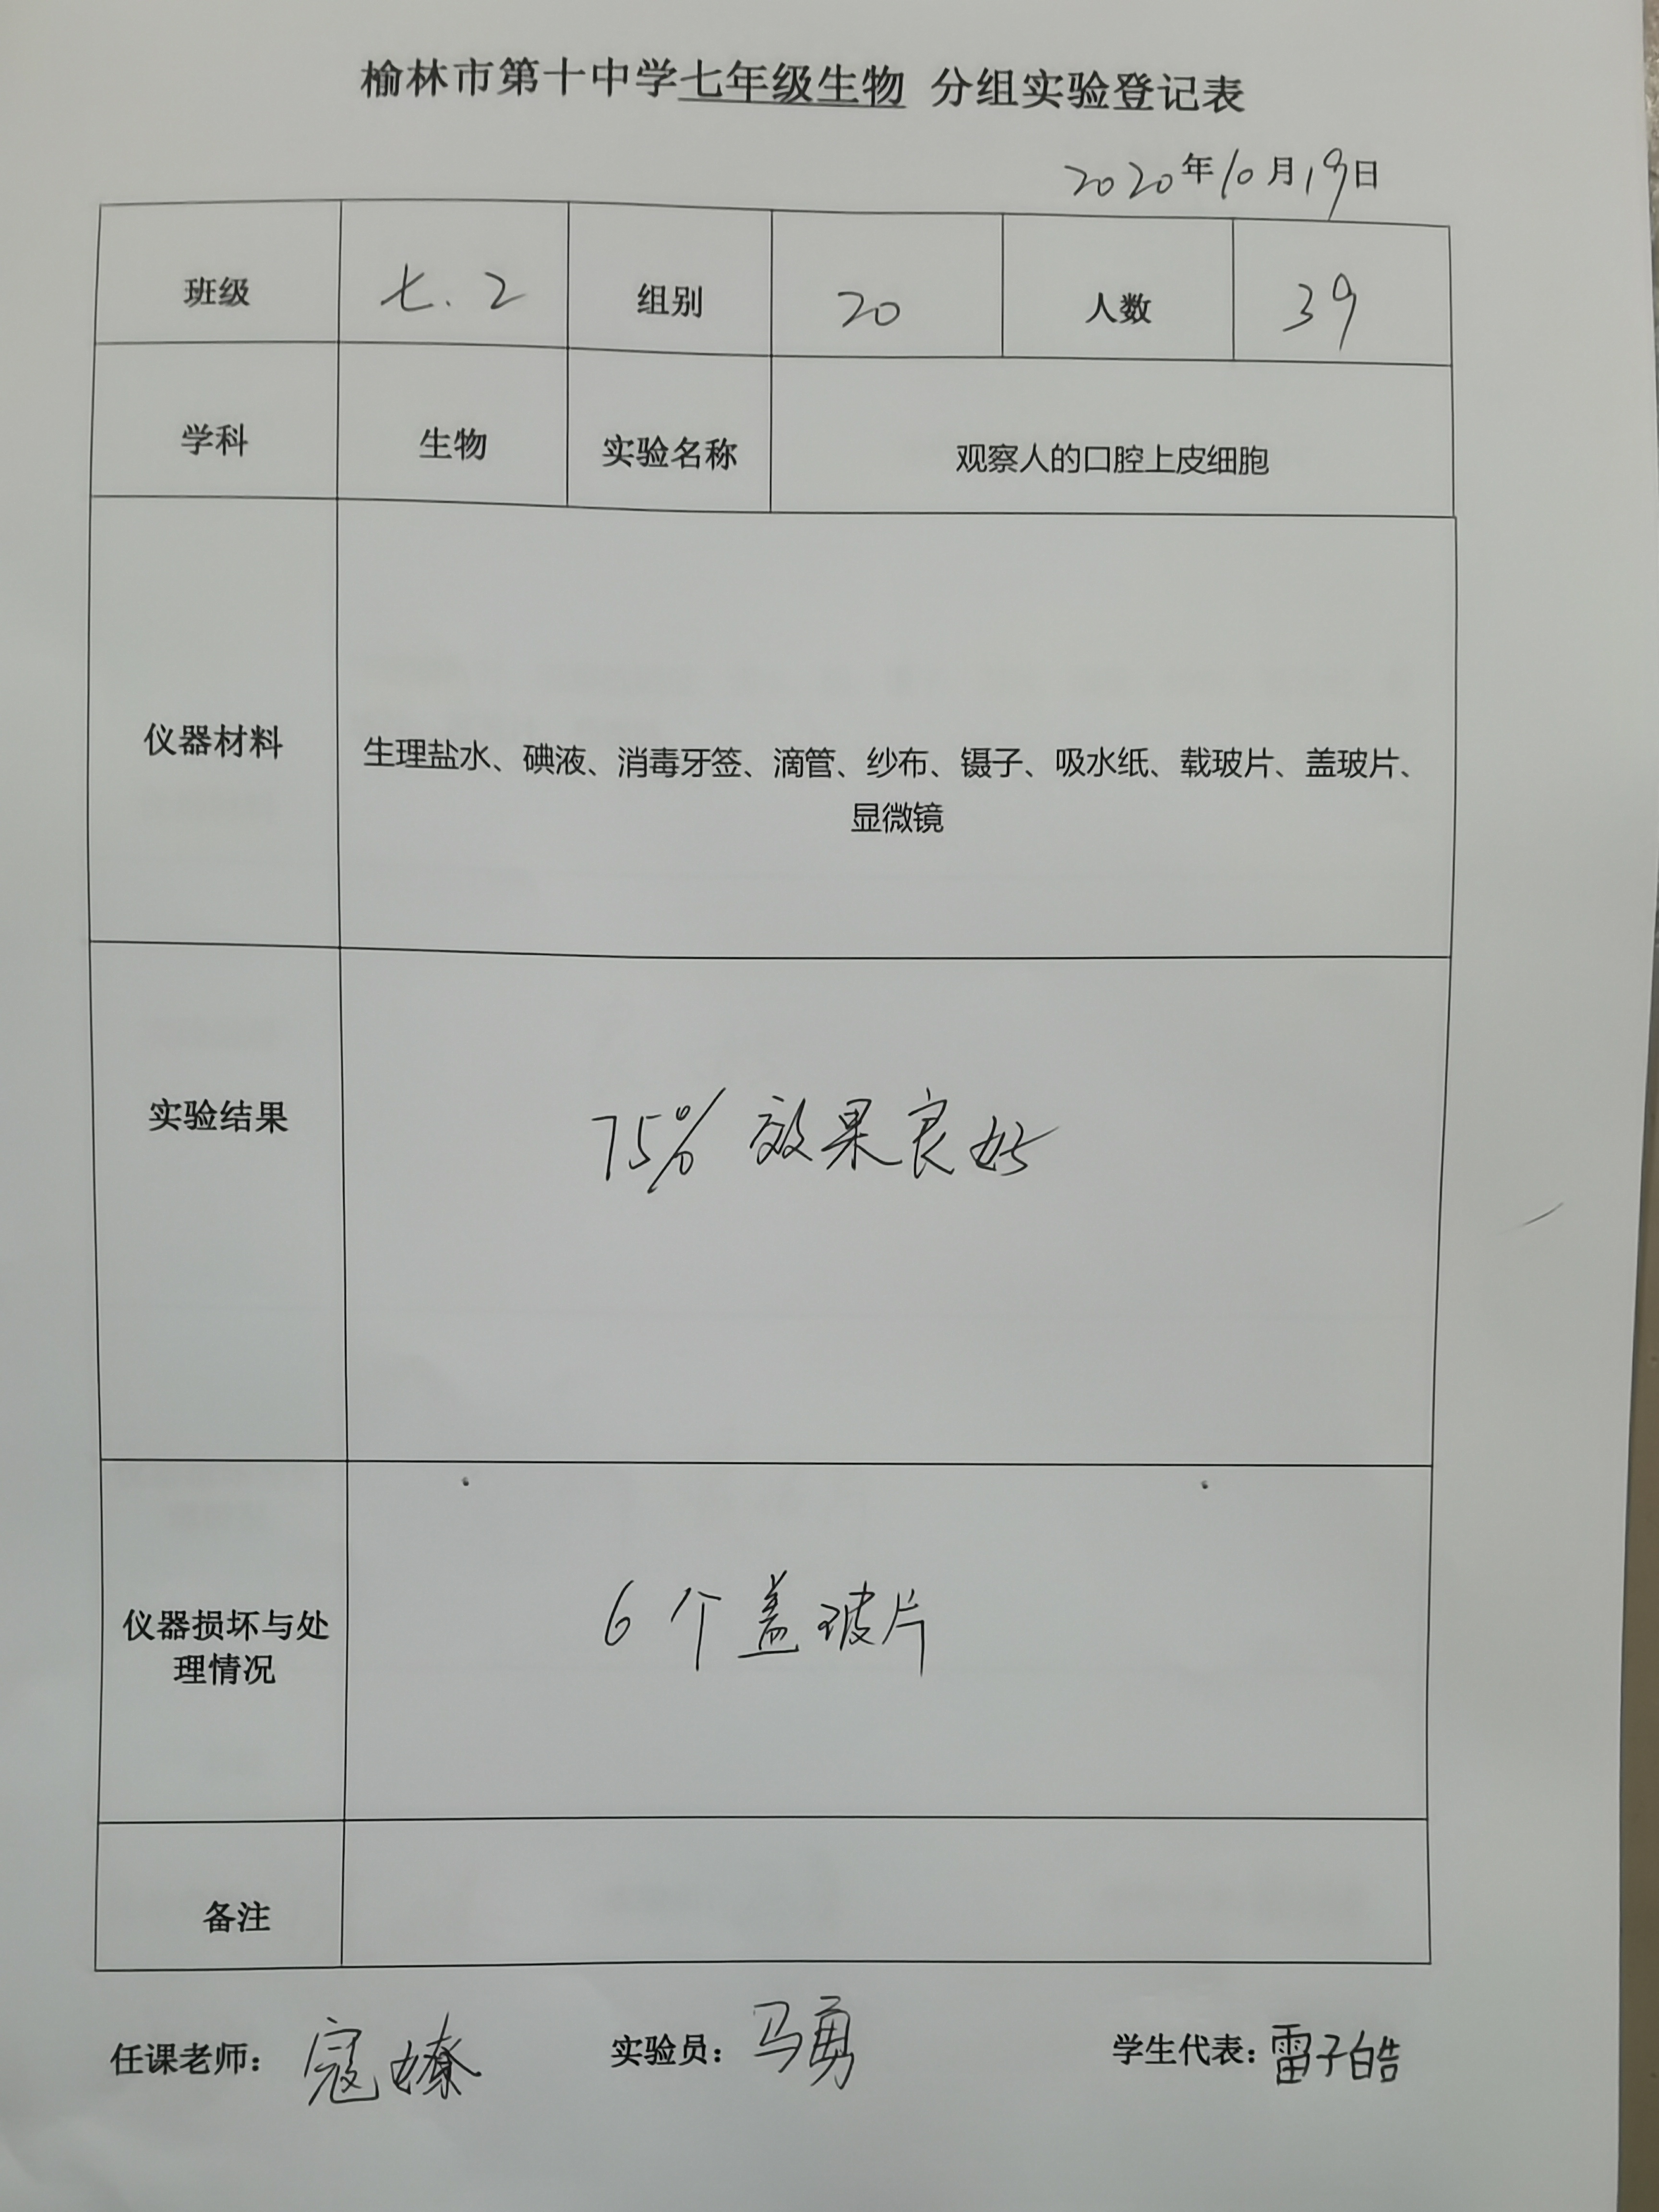 榆林市第十中学七年级生物 分组实验登记表
2020年10月19日
班级 七.2 组别 20 人数 39
学科 生物 实验名称 观察人的口腔上皮细胞
仪器材料 生理盐水、碘液、消毒牙签、滴管、纱布、镊子、吸水纸、载玻片、盖玻片、
显微镜
实验结果 75% 效果良好
仪器损坏与处
理情况
6个盖玻片
备注
任课老师：寇嫽 实验员：马勇 学生代表：雷子皓